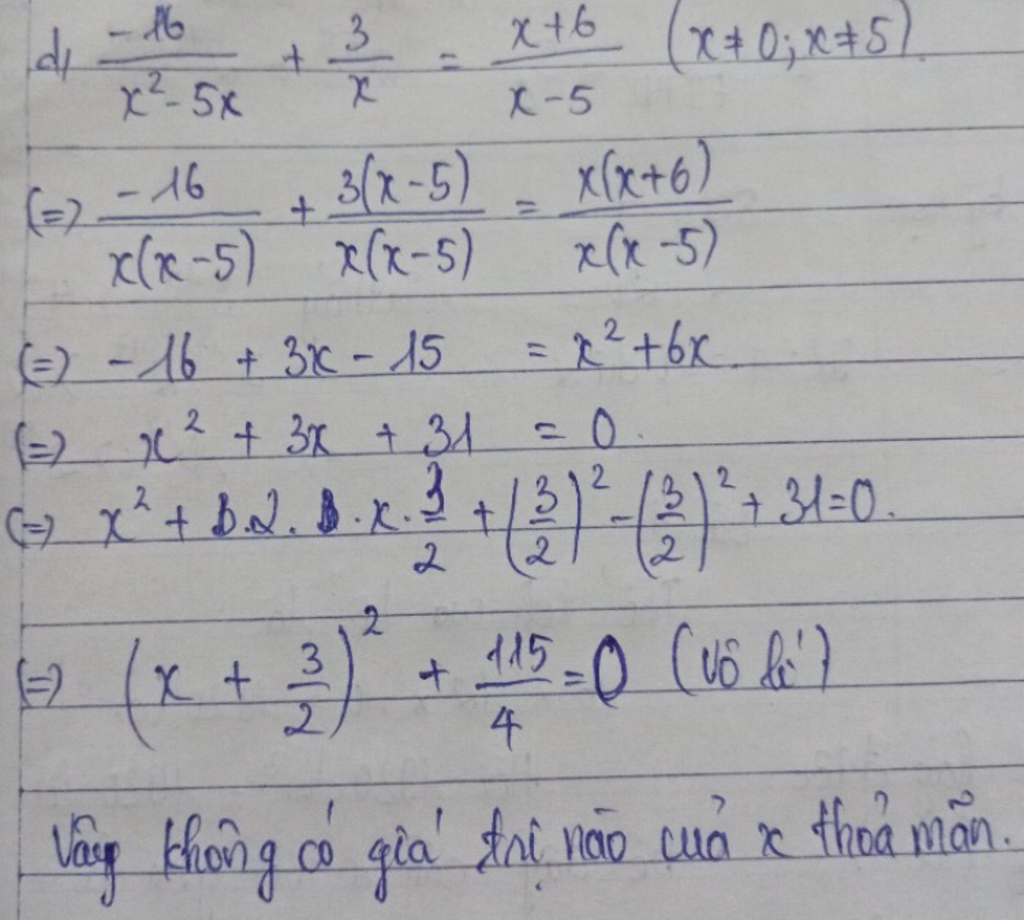 d, -16/(x² - 5x) + 3/x = (x+6)/(x-5) (x≠0; x≠5)
(=) -16/(x(x-5)) + 3(x-5)/(x(x-5)) = x(x+6)/(x(x-5))
(=) -16 + 3x - 15 = x² + 6x.
(=) x² + 3x + 31 = 0.
(=) x² + 2. x. 3/2 + (3/2)² - (3/2)² + 31=0.
(=) (x + 3/2)² + 115/4 = 0 (vô lí)
Vậy không có giá trị nào của x thoả mãn.